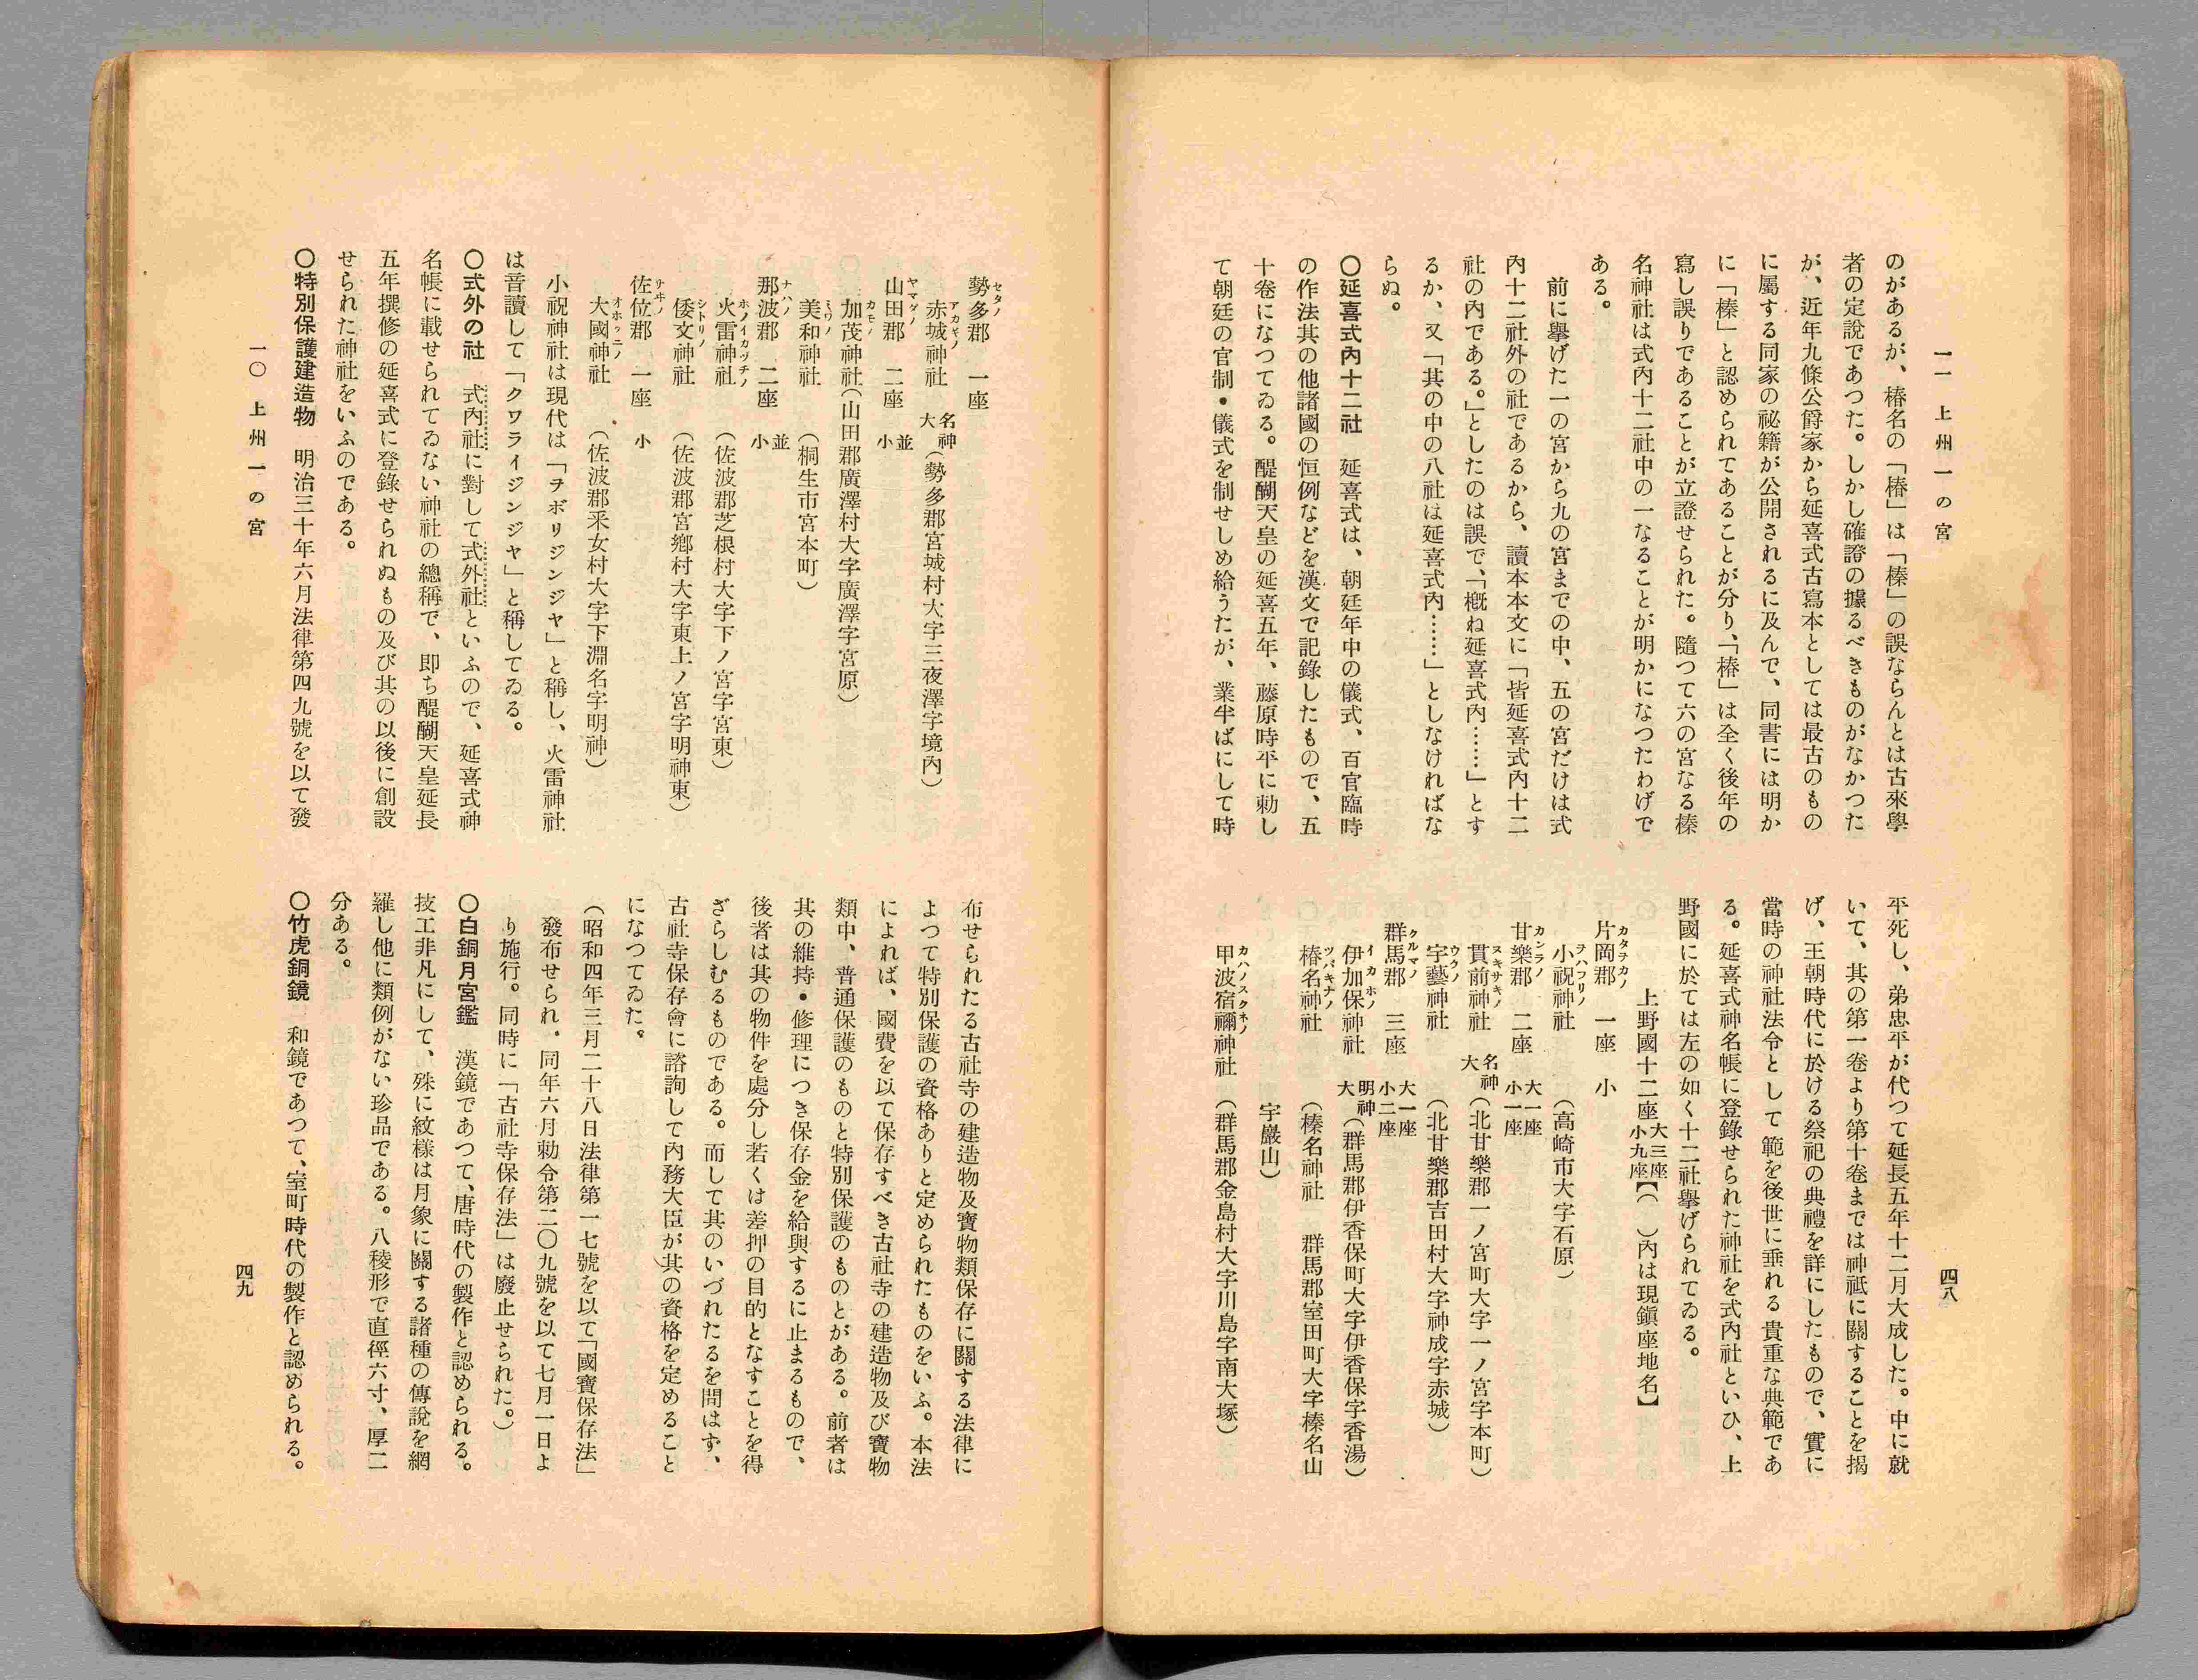 一一 上州一の宮
のがあるが、椿名の「椿」は「榛」の誤ならんとは古來學
者の定說であつた。しかし確證の據るべきものがなかつた
が、近年九條公爵家から延喜式古寫本としては最古のもの
に屬する同家の祕籍が公開されるに及んで、同書には明か
に「榛」と認められてあることが分り、「椿」は全く後年の
寫し誤りであることが立證せられた。隨つて六の宮なる榛
名神社は式內十二社中の一なることが明かになつたわけで
ある。
前に擧げた一の宮から九の宮までの中、五の宮だけは式
內十二社外の社であるから、讀本本文に「皆延喜式內十二
社の內である。」としたのは誤で、「槪ね延喜式內……」とす
るか、又「其の中の八社は延喜式內……」としなければな
らぬ。
〇延喜式內十二社 延喜式は、朝廷年中の儀式、百官臨時
の作法其の他諸國の恒例などを漢文で記錄したもので、五
十卷になつてゐる。醍醐天皇の延喜五年、藤原時平に勅し
て朝廷の官制・儀式を制せしめ給うたが、業半ばにして時
平死し、弟忠平が代つて延長五年十二月大成した。中に就
いて、其の第一卷より第十卷までは神祇に關することを揭
げ、王朝時代に於ける祭祀の典禮を詳にしたもので、實に
當時の神社法令として範を後世に垂れる貴重な典範であ
る。延喜式神名帳に登錄せられた神社を式內社といひ、上
野國に於ては左の如く十二社擧げられてゐる。
上野國十二座 大三座 小九座【( )內は現鎭座地名】
片岡郡 カタヲカノ 一座 小
小祝神社 ヲハフリノ (高崎市大字石原)
甘樂郡 カンラノ 二座 大一座 小一座
貫前神社 ヌキサキノ 名神大 (北甘樂郡一ノ宮町大字一ノ宮字本町)
宇藝神社 ウケノ (北甘樂郡吉田村大字神成字赤城)
群馬郡 クルマノ 三座 大一座 小二座
伊加保神社 イカホノ 明神大 (群馬郡伊香保町大字伊香保字香湯)
椿名神社 ツバキナノ (榛名神社 群馬郡室田町大字榛名山
字巖山)
甲波宿禰神社 カハノスクネノ (群馬郡金島村大字川島字南大塚)
四八
勢多郡 セタノ 一座
赤城神社 アカギノ 名神大 (勢多郡宮城村大字三夜澤字境內)
山田郡 ヤマダノ 二座 並小
加茂神社 カモノ (山田郡廣澤村大字廣澤字宮原)
美和神社 ミワノ (桐生市宮本町)
那波郡 ナハノ 二座 並小
火雷神社 ホノイカヅチノ (佐波郡芝根村大字下ノ宮字宮東)
倭文神社 シトリノ (佐波郡宮鄕村大字東上ノ宮字明神東)
佐位郡 サヰノ 一座 小
大國神社 オホクニノ (佐波郡采女村大字下淵名字明神)
小祝神社は現代は「ヲボリジンジヤ」と稱し、火雷神社
は音讀して「クワライジンジヤ」と稱してゐる。
〇式外の社 式內社に對して式外社といふので、延喜式神
名帳に載せられてゐない神社の總稱で、卽ち醍醐天皇延長
五年撰修の延喜式に登錄せられぬもの及び其の以後に創設
せられた神社をいふのである。
〇特別保護建造物 明治三十年六月法律第四九號を以て發
布せられたる古社寺の建造物及寶物類保存に關する法律に
よつて特別保護の資格ありと定められたものをいふ。本法
によれば、國費を以て保存すべき古社寺の建造物及び寶物
類中、普通保護のものと特別保護のものとがある。前者は
其の維持・修理につき保存金を給與するに止まるもので、
後者は其の物件を處分し若くは差押の目的となすことを得
ざらしむるものである。而して其のいづれたるを問はず、
古社寺保存會に諮詢して內務大臣が其の資格を定めること
になつてゐた。
(昭和四年三月二十八日法律第一七號を以て「國寶保存法」
發布せられ。同年六月勅令第二〇九號を以て七月一日よ
り施行。同時に「古社寺保存法」は廢止せられた。)
〇白銅月宮鑑 漢鏡であつて、唐時代の製作と認められる。
技工非凡にして、殊に紋樣は月象に關する諸種の傳說を網
羅し他に類例がない珍品である。八稜形で直徑六寸、厚二
分ある。
〇竹虎銅鏡 和鏡であつて、室町時代の製作と認められる。
一〇 上州一の宮
四九